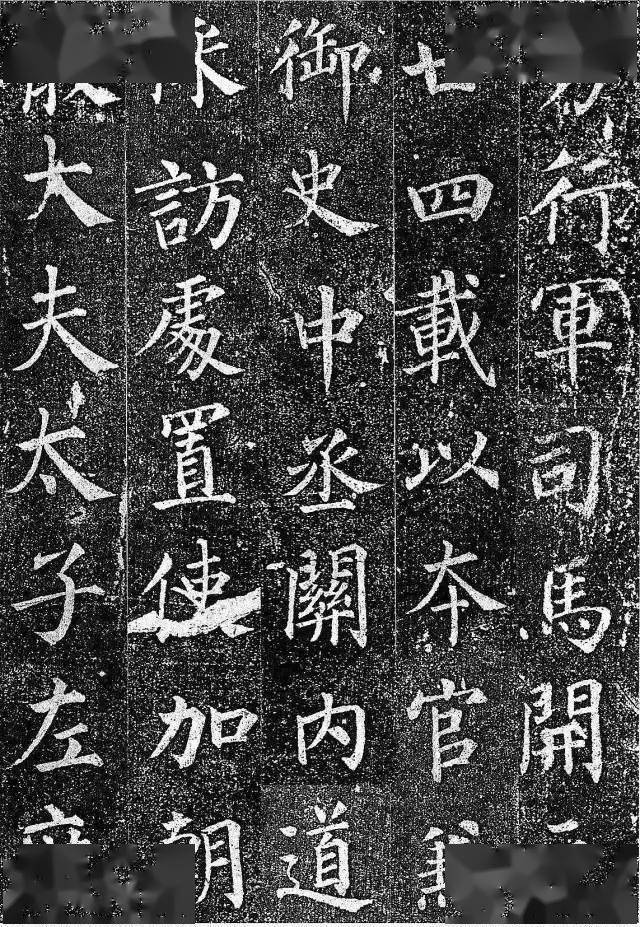 行軍司馬開
七四載以本官兼
御史中丞關內道
採訪處置使加朝
散大夫太子左